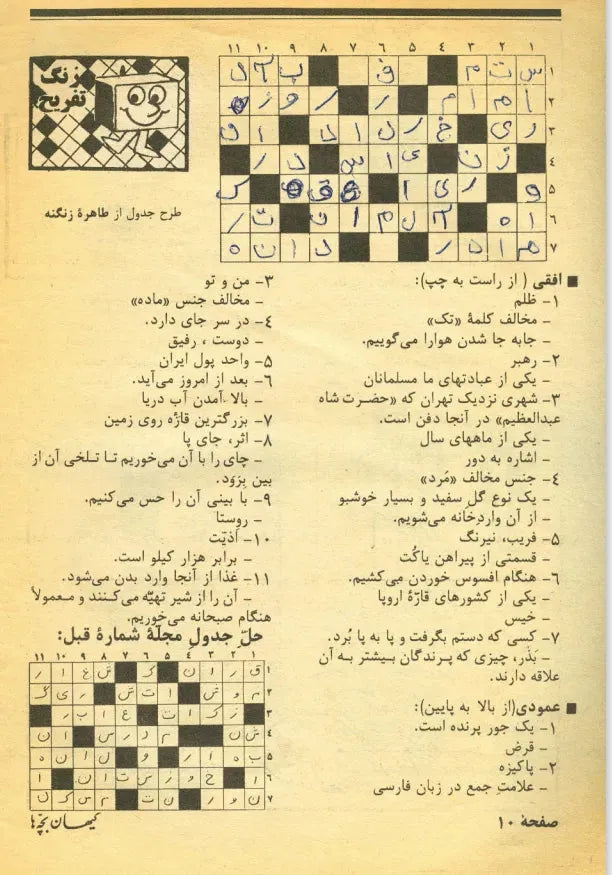 زنگ
تفریح
طرح جدول از طاهرهٔ زنگنه
۱ ۲ ۳ ۴ ۵ ۶ ۷ ۸ ۹ ۱۰ ۱۱
۱ س ت م ف
۲ ا م ا م ر ر و ز ه
۳ ر ی خ ر د ا د
۴ ز ن ی ا س د ر
۵ و ر ی ا
۶ ا ه آ ل م ا ن ت ر
۷ م ا د ر د ا ن ه
افقی ( از راست به چپ):
۱- ظلم
- مخالف کلمهٔ «تک»
- جابه جا شدن هوارا می‌گوییم.
۲- رهبر
- یکی از عبادتهای ما مسلمانان
۳- شهری نزدیک تهران که «حضرت شاه
عبدالعظیم» در آنجا دفن است.
- یکی از ماههای سال
- اشاره به دور
۴- جنس مخالف «مَرد»
- یک نوع گل سفید و بسیار خوشبو
- از آن واردِخانه می‌شویم.
۵- فریب، نیرنگ
- قسمتی از پیراهن یاکُت
۶- هنگام افسوس خوردن می‌کشیم.
- یکی از کشورهای قارّهٔ اروپا
- خیس
۷- کسی که دستم بگرفت و پا به پا بُرد.
- بَذْر، چیزی که پرندگان بیشتر به آن
علاقه دارند.
عمودی(از بالا به پایین):
۱- یک جور پرنده است.
- قرض
۲- پاکیزه
- علامتِ جمع در زبان فارسی
۳- من و تو
- مخالف جنس «ماده»
۴- در سر جای دارد.
- دوست ، رفیق
۵- واحد پول ایران
۶- بعد از امروز می‌آید.
- بالا آمدن آب دریا
۷- بزرگترین قارّه روی زمین
۸- اثر، جای پا
- چای را با آن می‌خوریم تا تلخی آن از
بین بِرَوَد.
۹- با بینی آن را حس می‌کنیم.
- روستا
۱۰- اَذیّت
- برابر هزار کیلو است.
۱۱- غذا از آنجا وارد بدن می‌شود.
- آن را از شیر تهیّه می‌کنند و معمولاً
هنگام صبحانه می‌خوریم.
حلّ جدولِ مجلّهٔ شمارهٔ قبل:
۱ ۲ ۳ ۴ ۵ ۶ ۷ ۸ ۹ ۱۰ ۱۱
صفحهٔ ۱۰
کیهان بچّه‌ها